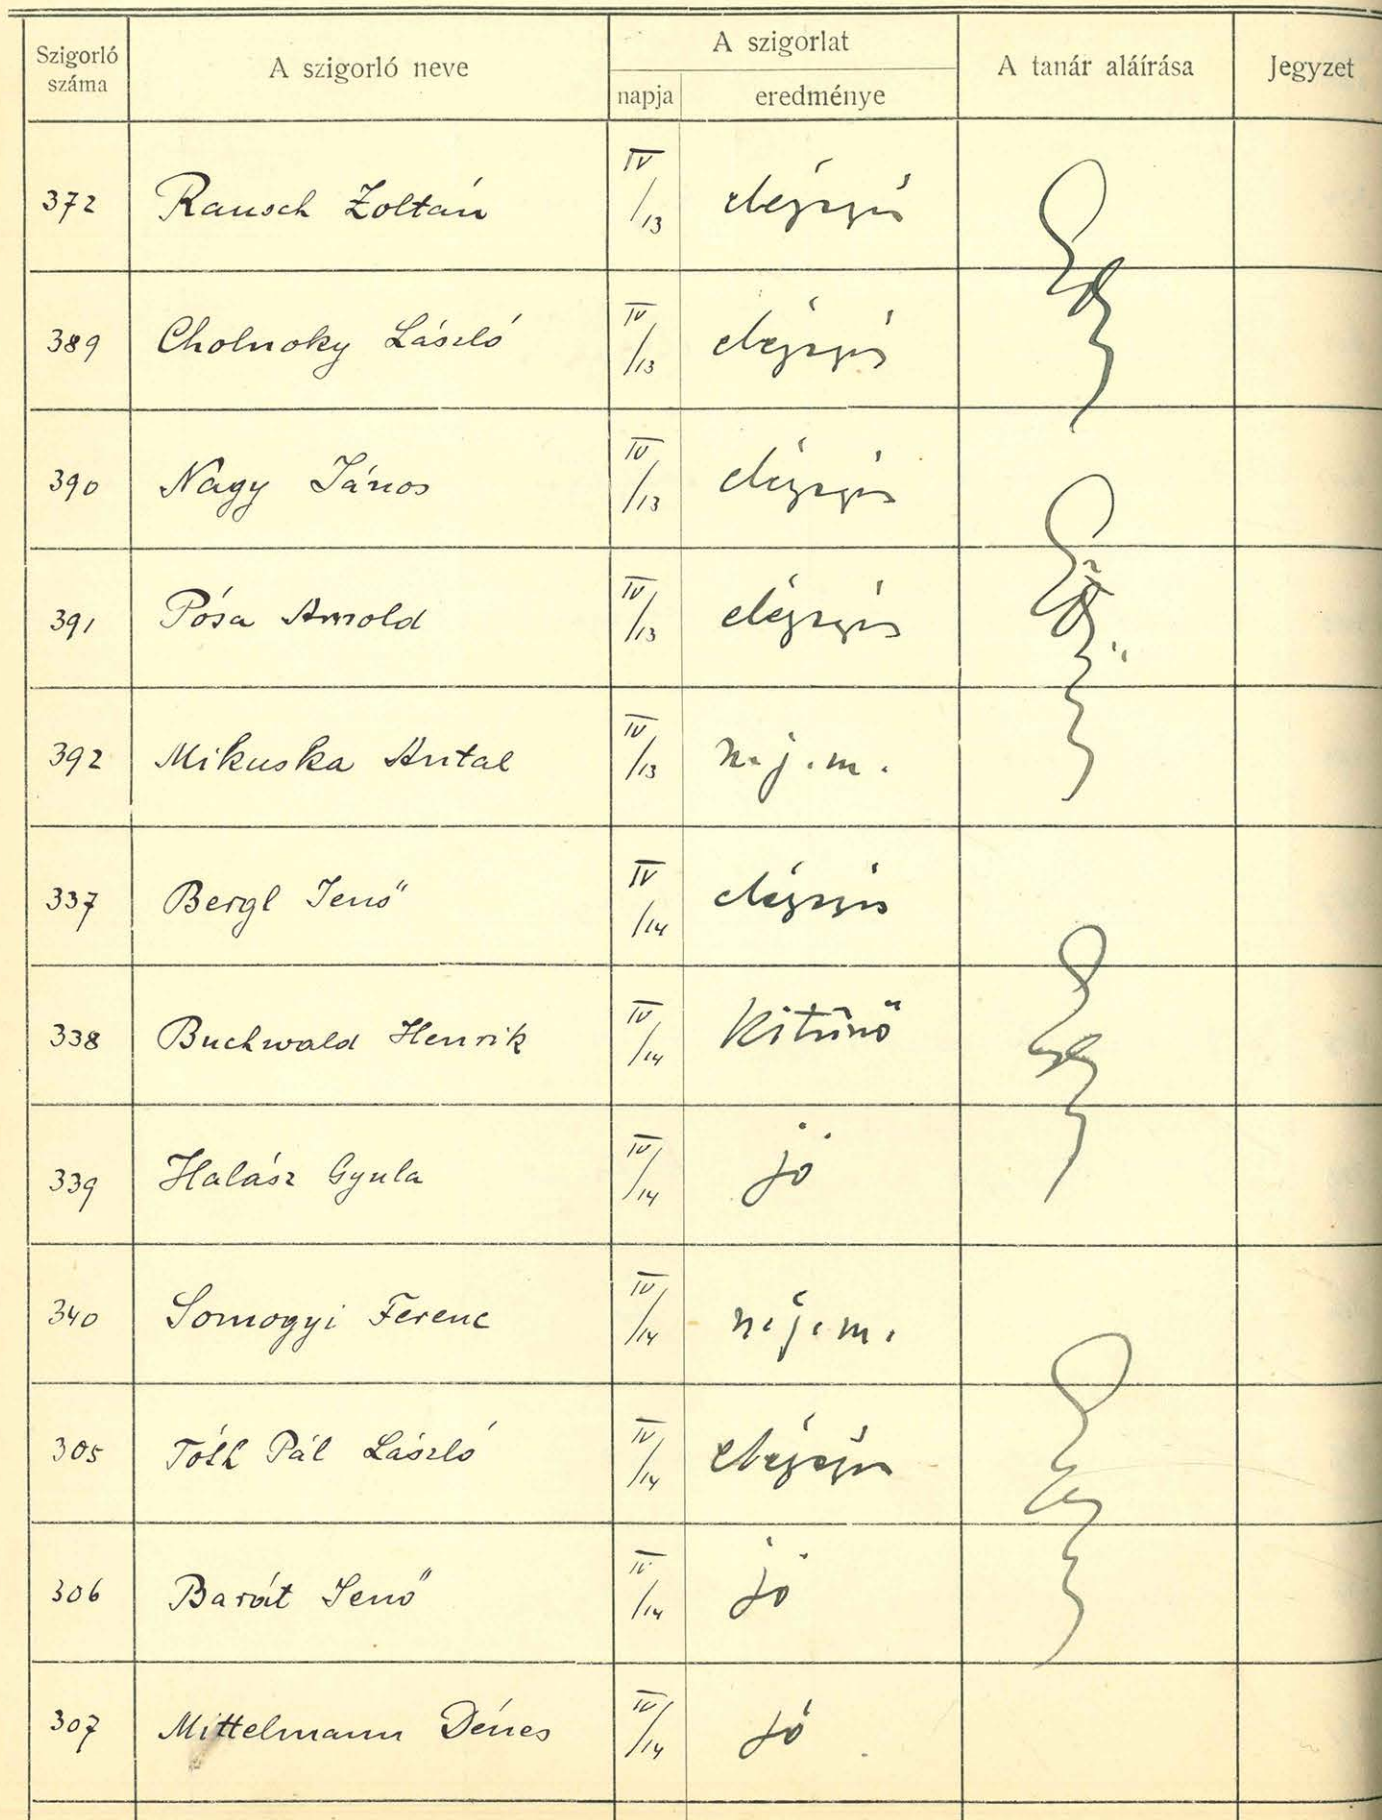 Szigorló száma
A szigorló neve
A szigorlat
napja
eredménye
A tanár aláírása
Jegyzet
372 Rausch Zoltán IV/13 elégséges
389 Cholnoky László IV/13 elégséges
390 Nagy János IV/13 elégséges
391 Pósa Arnold IV/13 elégséges
392 Mikuska Antal IV/13 n.j.m.
337 Bergl Jenő IV/14 elégséges
338 Buchwald Henrik IV/14 Kitűnő
339 Halász Gyula IV/14 jó
340 Somogyi Ferenc IV/14 n.j.m.
305 Tóth Pál László IV/14 elégséges
306 Barát Jenő IV/14 jó
307 Mittelmann Dénes IV/14 jó